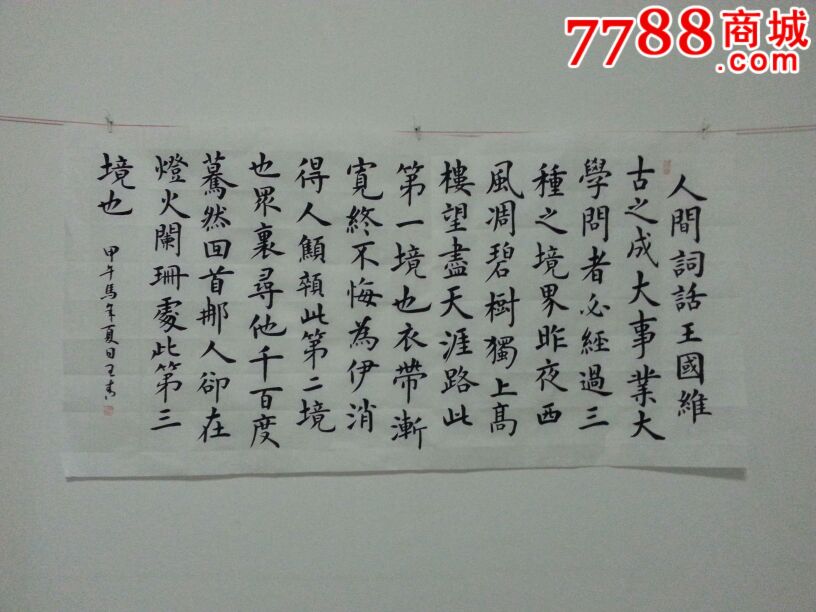 7788商城
.com
人間詞話王國維
古之成大事業大
學問者必經過三
種之境界昨夜西
風凋碧樹獨上高
樓望盡天涯路此
第一境也衣帶漸
寬終不悔為伊消
得人顦顇此第二境
也眾裏尋他千百度
驀然回首那人卻在
燈火闌珊處此第三
境也
甲午馬年夏日王